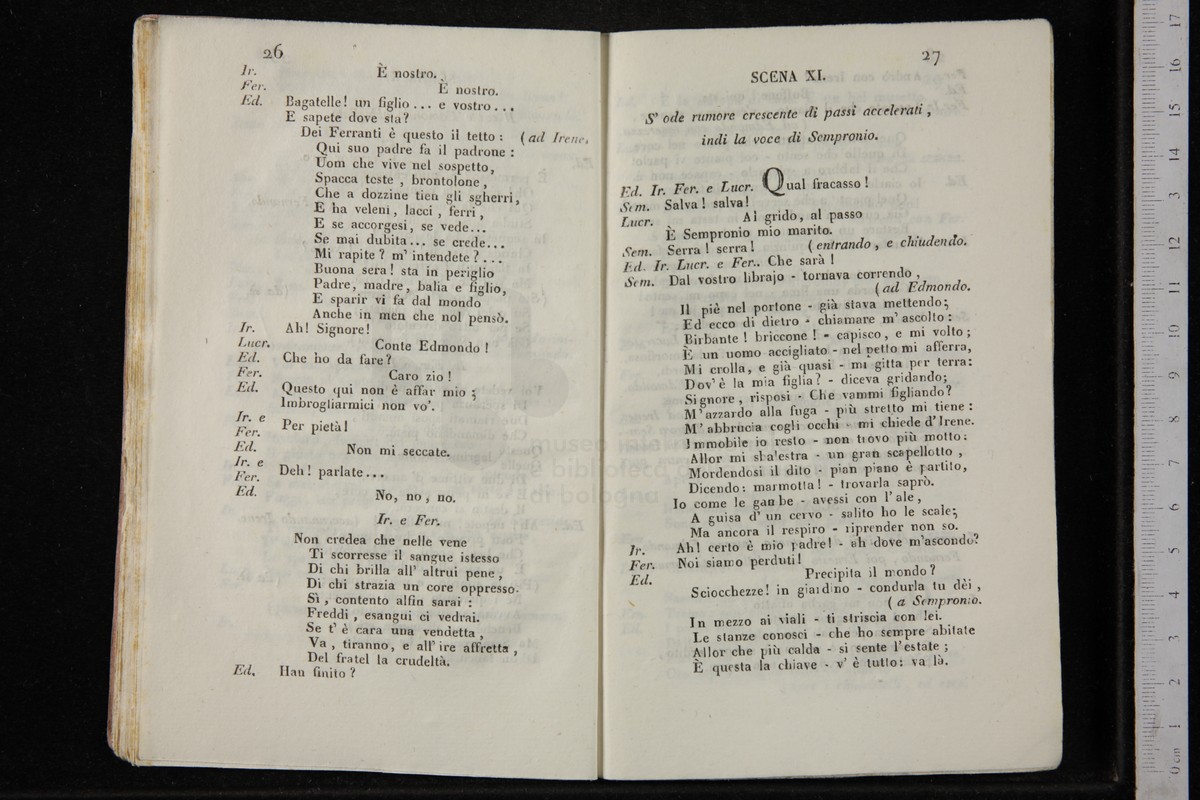 26
Ir. È nostro.
Fer. È nostro.
Ed. Bagatelle! un figlio ... e vostro ...
E sapete dove sta?
Dei Ferranti è questo il tetto: (ad Irene.
Qui suo padre fa il padrone:
Uom che vive nel sospetto,
Spacca teste, brontolone,
Che a dozzine tien gli sgherri,
E ha veleni, lacci, ferri,
E se accorgesi, se vede...
Se mai dubita... se crede...
Mi rapite? m' intendete? ...
Buona sera! sta in periglio
Padre, madre, balia e figlio,
E sparir vi fa dal mondo
Anche in men che nol pensò.
Ir. Ah! Signore!
Lucr. Conte Edmondo!
Ed. Che ho da fare?
Fer. Caro zio!
Ed. Questo qui non è affar mio;
Imbrogliarmici non vo'.
Ir. e
Fer. Per pietà!
Ed. Non mi seccate.
Ir. e
Fer. Deh! parlate...
Ed. No, no, no.
Ir. e Fer.
Non credea che nelle vene
Ti scorresse il sangue istesso
Di chi brilla all' altrui pene,
Di chi strazia un core oppresso.
Sì, contento alfin sarai:
Freddi, esangui ci vedrai.
Se t' è cara una vendetta,
Va, tiranno, e all' ire affretta,
Del fratel la crudeltà.
Ed. Han finito?
27
SCENA XI.
S' ode rumore crescente di passi accelerati,
indi la voce di Sempronio.
Ed. Ir. Fer. e Lucr. Qual fracasso!
Sem. Salva! salva!
Lucr. Al grido, al passo
È Sempronio mio marito.
Sem. Serra! serra! (entrando, e chiudendo.
Ed. Ir. Lucr. e Fer.. Che sarà!
Sem. Dal vostro librajo - tornava correndo,
(ad Edmondo.
Il piè nel portone - già stava mettendo;
Ed ecco di dietro - chiamare m' ascolto:
Birbante! briccone! - capisco, e mi volto;
È un uomo accigliato - nel petto mi afferra,
Mi crolla, e già quasi - mi gitta per terra:
Dov' è la mia figlia? - diceva gridando;
Signore, risposi - Che vammi figliando?
M' azzardo alla fuga - più stretto mi tiene:
M' abbrucia cogli occhi - mi chiede d' Irene.
Immobile io resto - non trovo più motto:
Allor mi sbalestra - un gran scapellotto,
Mordendosi il dito - pian piano è partito,
Dicendo: marmotta! - trovarla saprò.
Io come le gambe - avessi con l' ale,
A guisa d' un cervo - salito ho le scale;
Ma ancora il respiro - riprender non so.
Ir. Ah! certo è mio padre! - ah dove m'ascondo?
Fer. Noi siamo perduti!
Ed. Precipita il mondo?
Sciocchezze! in giardino - condurla tu dêi,
(a Sempronio.
In mezzo ai viali - ti striscia con lei.
Le stanze conosci - che ho sempre abitate
Allor che più calda - si sente l' estate;
È questa la chiave - v' è tutto: va là.
museo
e biblioteca
di bologna